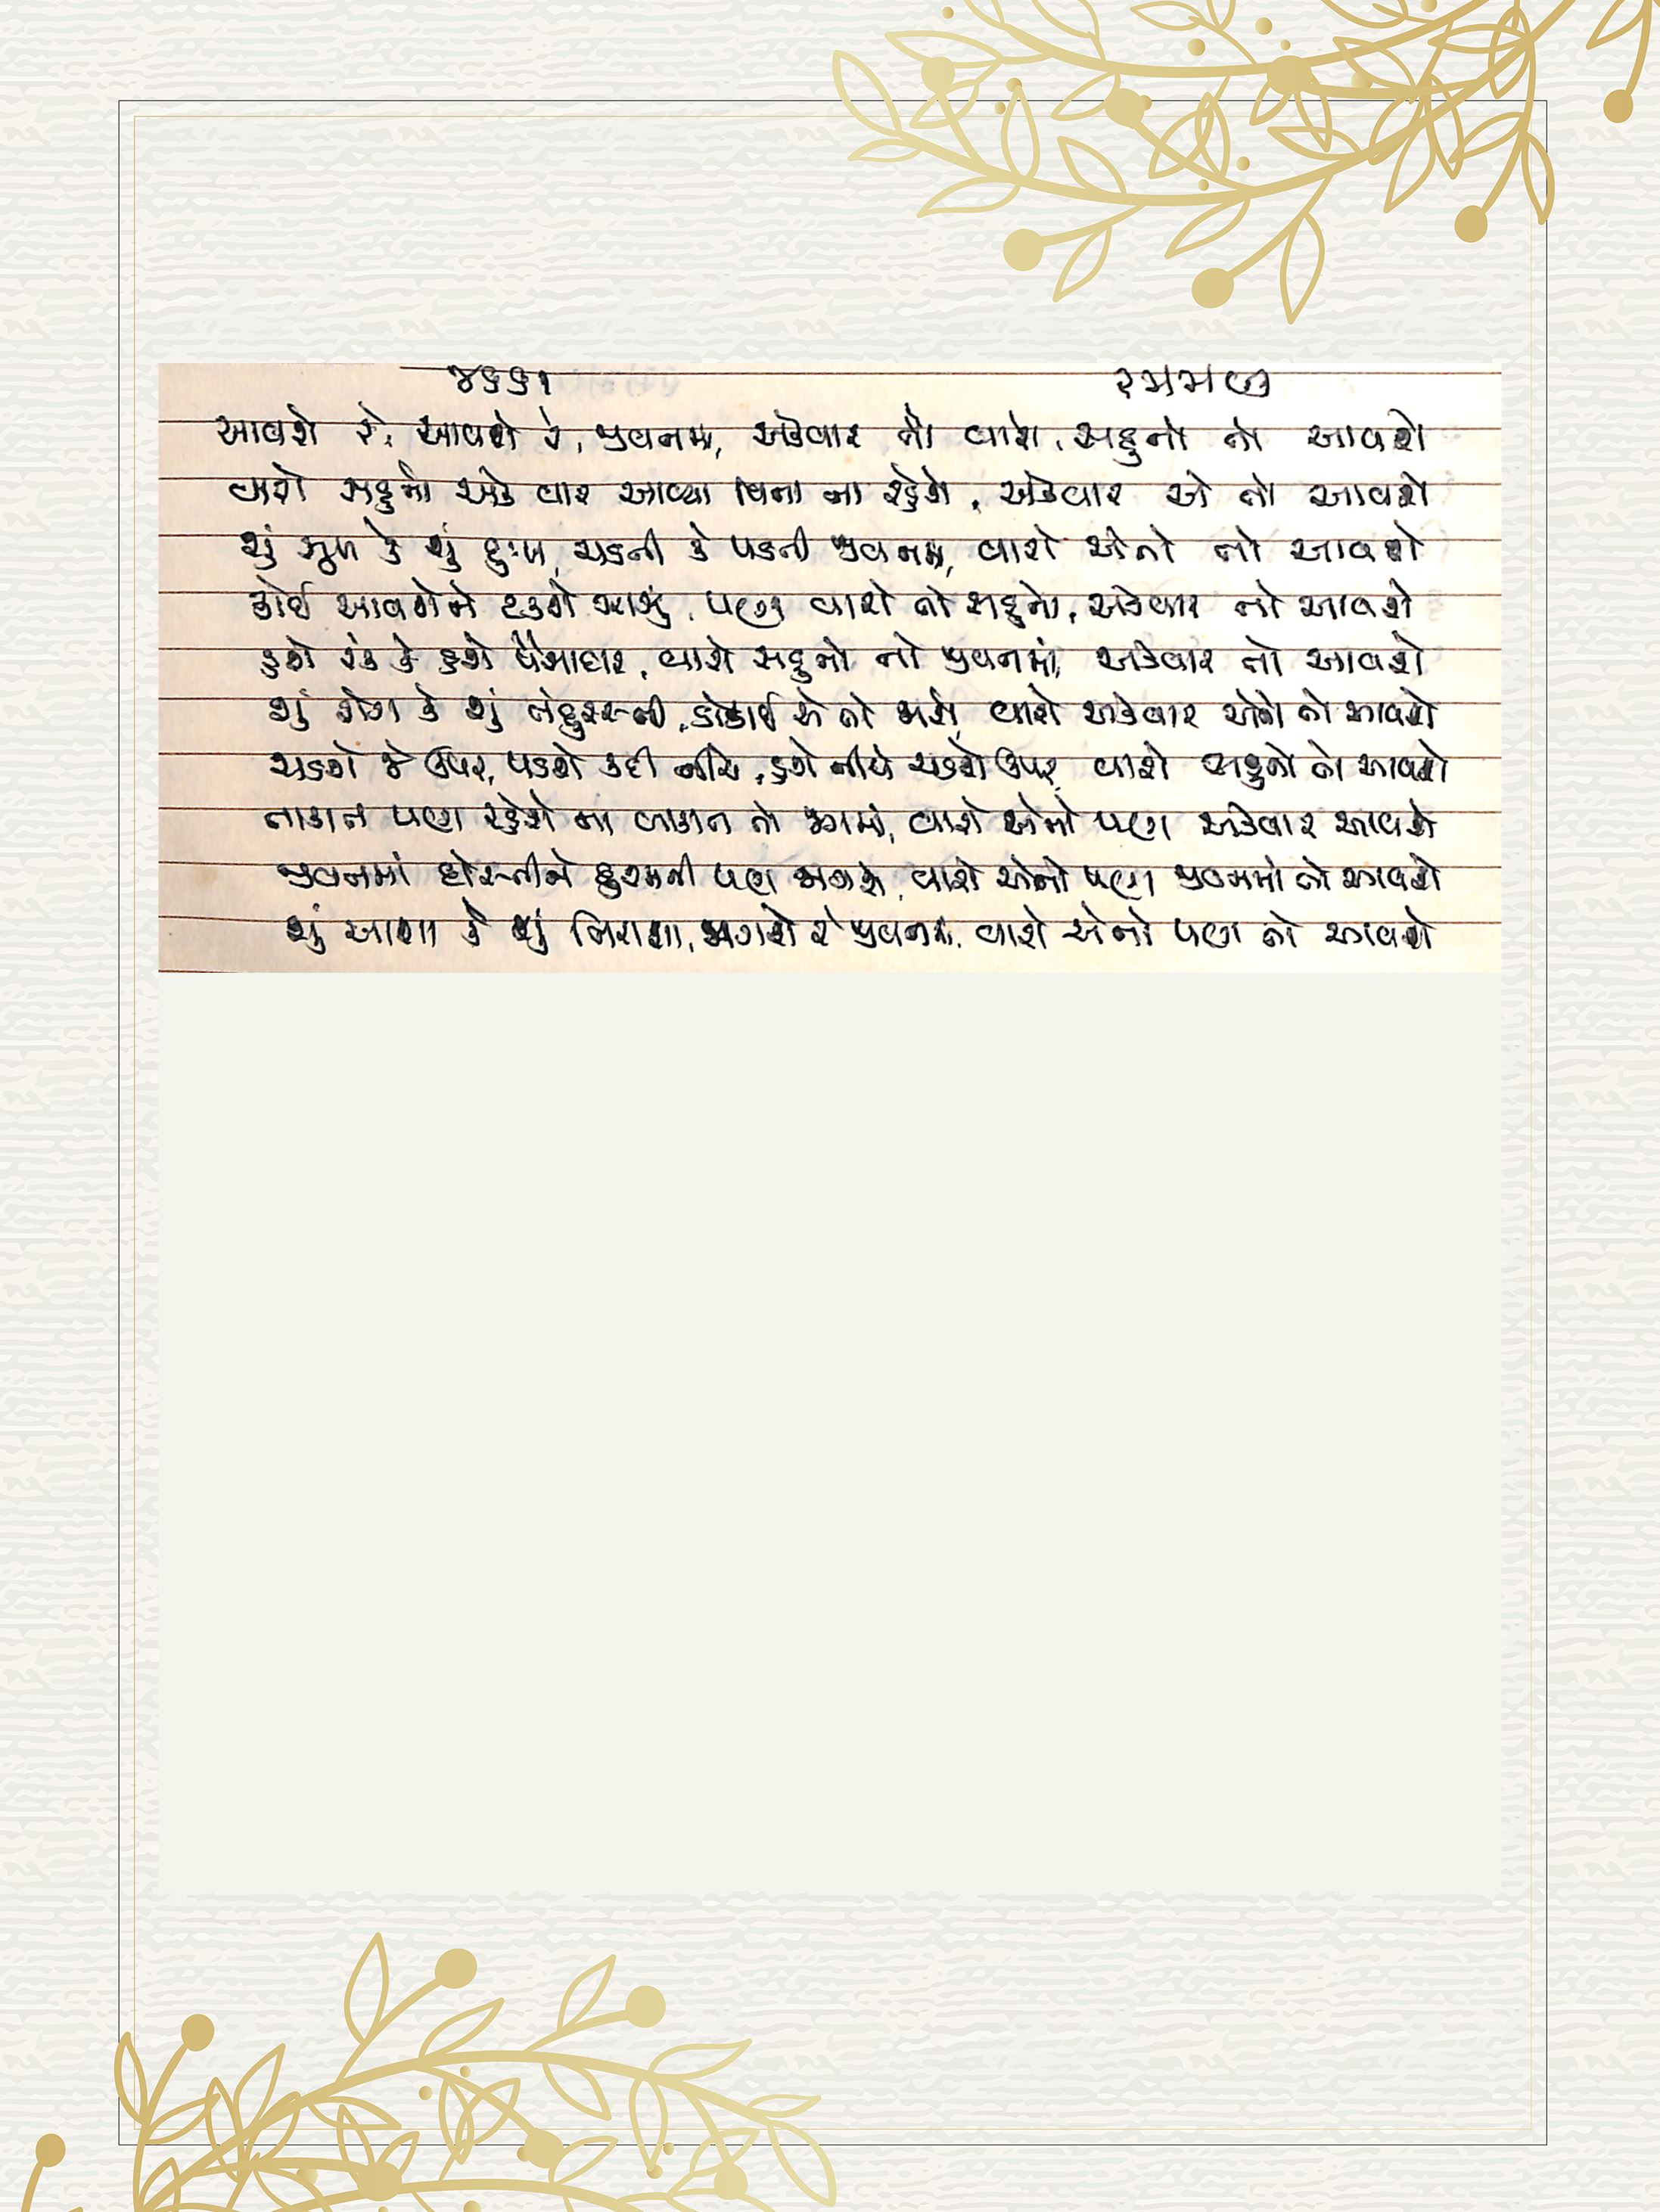 ૪૬૬૧
આવશે રે, આવશે રે, જીવનમાં, એકવાર તો વારો, સહુનો તો આવશે
વારો સહુનો એક વાર આવ્યા વિના ના રહેશે, એકવાર એ તો આવશે
શું સુખ કે શું દુઃખ, ચડતી કે પડતી જીવનમાં, વારો એનો તો આવશે
કોઈ આવશે ને ટકશે ઝાઝું, પણ વારો તો સહુનો, એકવાર તો આવશે
હશે રંક કે હશે પૈસાદાર, વારો સહુનો તો જીવનમાં, એકવાર તો આવશે
શું રોગ કે શું તંદુરસ્તી, કોઈ એ તો વારો એકવાર એનો તો આવશે
ચડશે જે ઉપર, પડશે કદી નીચે, હશે નીચે ચડશે ઉપર, વારો સહુનો તો આવશે
તાકાત પણ રહેશે ના તાકાત તો વારો એનો પણ એકવાર આવશે
જીવનમાં દોસ્તીને દુશ્મની પણ જાગશે, વારો એનો પણ જીવનમાં તો આવશે
શું આશા કે શું નિરાશા, જાગશે રે જીવનમાં, વારો એનો પણ તો આવશે